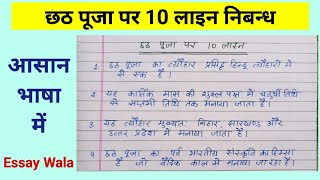 छठ पूजा पर 10 लाइन निबन्ध
आसान
भाषा
में
Essay Wala
छठ पूजा पर 10 लाइन
1. छठ पूजा का त्यौहार प्रसिद्ध हिन्दू त्यौहारों में
से एक है।
2. यह कार्तिक मास की शुक्ल पक्ष में चतुर्थी तिथि
से सप्तमी तिथि तक मनाया जाता है।
3. यह त्यौहार मुख्यतः बिहार, झारखण्ड और
उत्तर प्रदेश में मनाया जाता है।
4. छठ पूजा का पर्व भारतीय संस्कृति का हिस्सा
है जो वैदिक काल से मनाया जा रहा है।